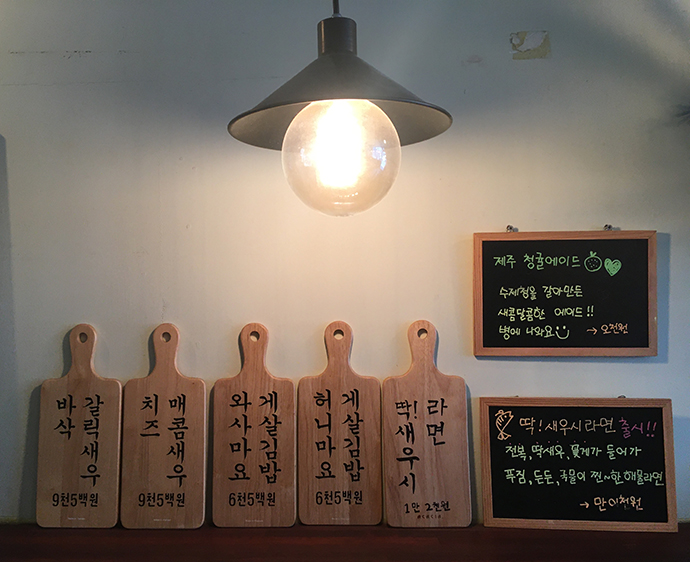 바삭
갈릭새우
9천5백원
치즈
매콤새우
9천5백원
와사마요
게살김밥
6천5백원
허니마요
게살김밥
6천5백원
딱!새우시
라면
1만 2천원
제주 청귤에이드
수제청을 갈아만든
새콤달콤한 에이드!!
병에 나와요 → 오천원
딱!새우시라면 출시!!
전복, 딱새우, 꽃게가 들어가
푸짐, 든든, 국물이 찐~한 해물라면
→ 만이천원